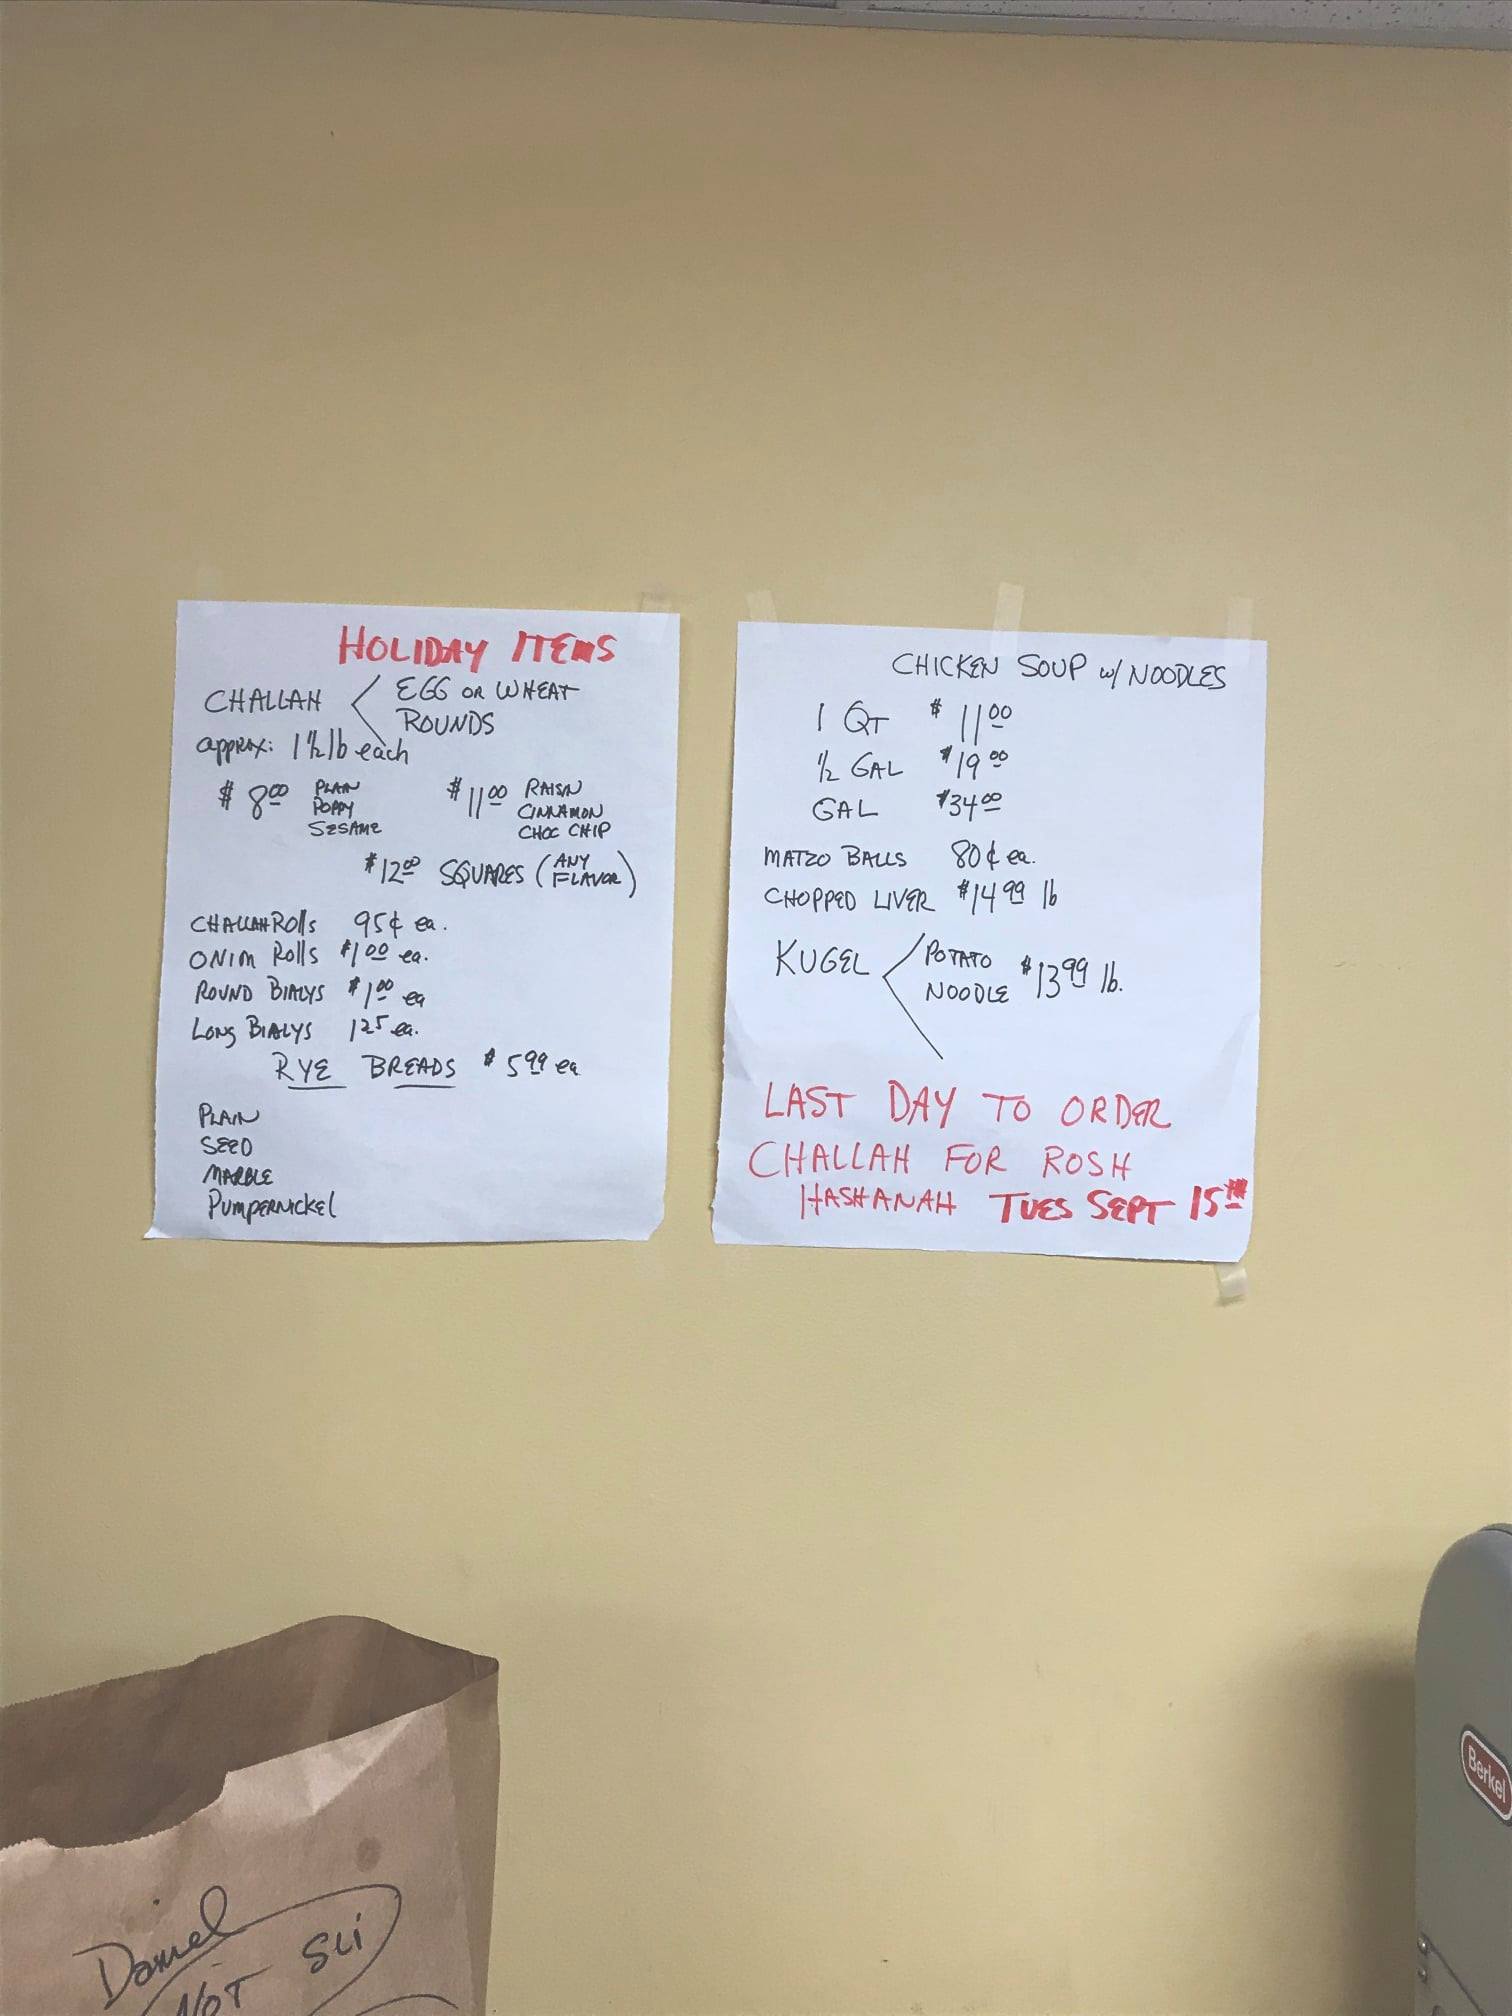 HOLIDAY ITEMS
CHALLAH < EGG OR WHEAT
ROUNDS
approx: 1 1/2 lb each
$8.00 PLAIN
POPPY
SESAME
$11.00 RAISIN
CINNAMON
CHOC CHIP
$12.00 SQUARES (ANY FLAVOR)
CHALLAH Rolls 95¢ ea.
ONION Rolls $1.00 ea.
ROUND BIALYS $1.00 ea
LONG BIALYS 1.25 ea.
RYE BREADS $5.99 ea
PLAIN
SEED
MARBLE
PUMPERNICKEL
CHICKEN SOUP w/ NOODLES
1 QT $11.00
1/2 GAL $19.00
GAL $34.00
MATZO BALLS 80¢ ea.
CHOPPED LIVER $14.99 lb
KUGEL < POTATO
NOODLE $13.99 lb.
LAST DAY TO ORDER
CHALLAH FOR ROSH
HASHANAH TUES SEPT 15TH
Berkel
Daniel
NOT Sli